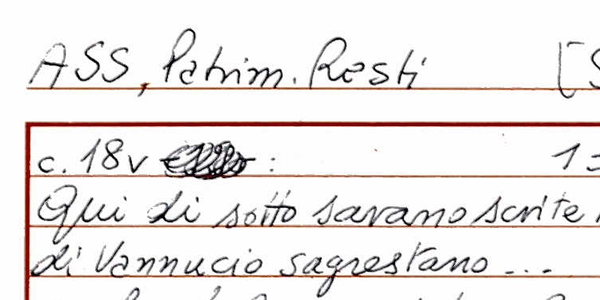 ASS, Patrim. Resti [S
c. 18v : 1
Qui di sotto sarano scrite
di Vannucio sagrestano ...